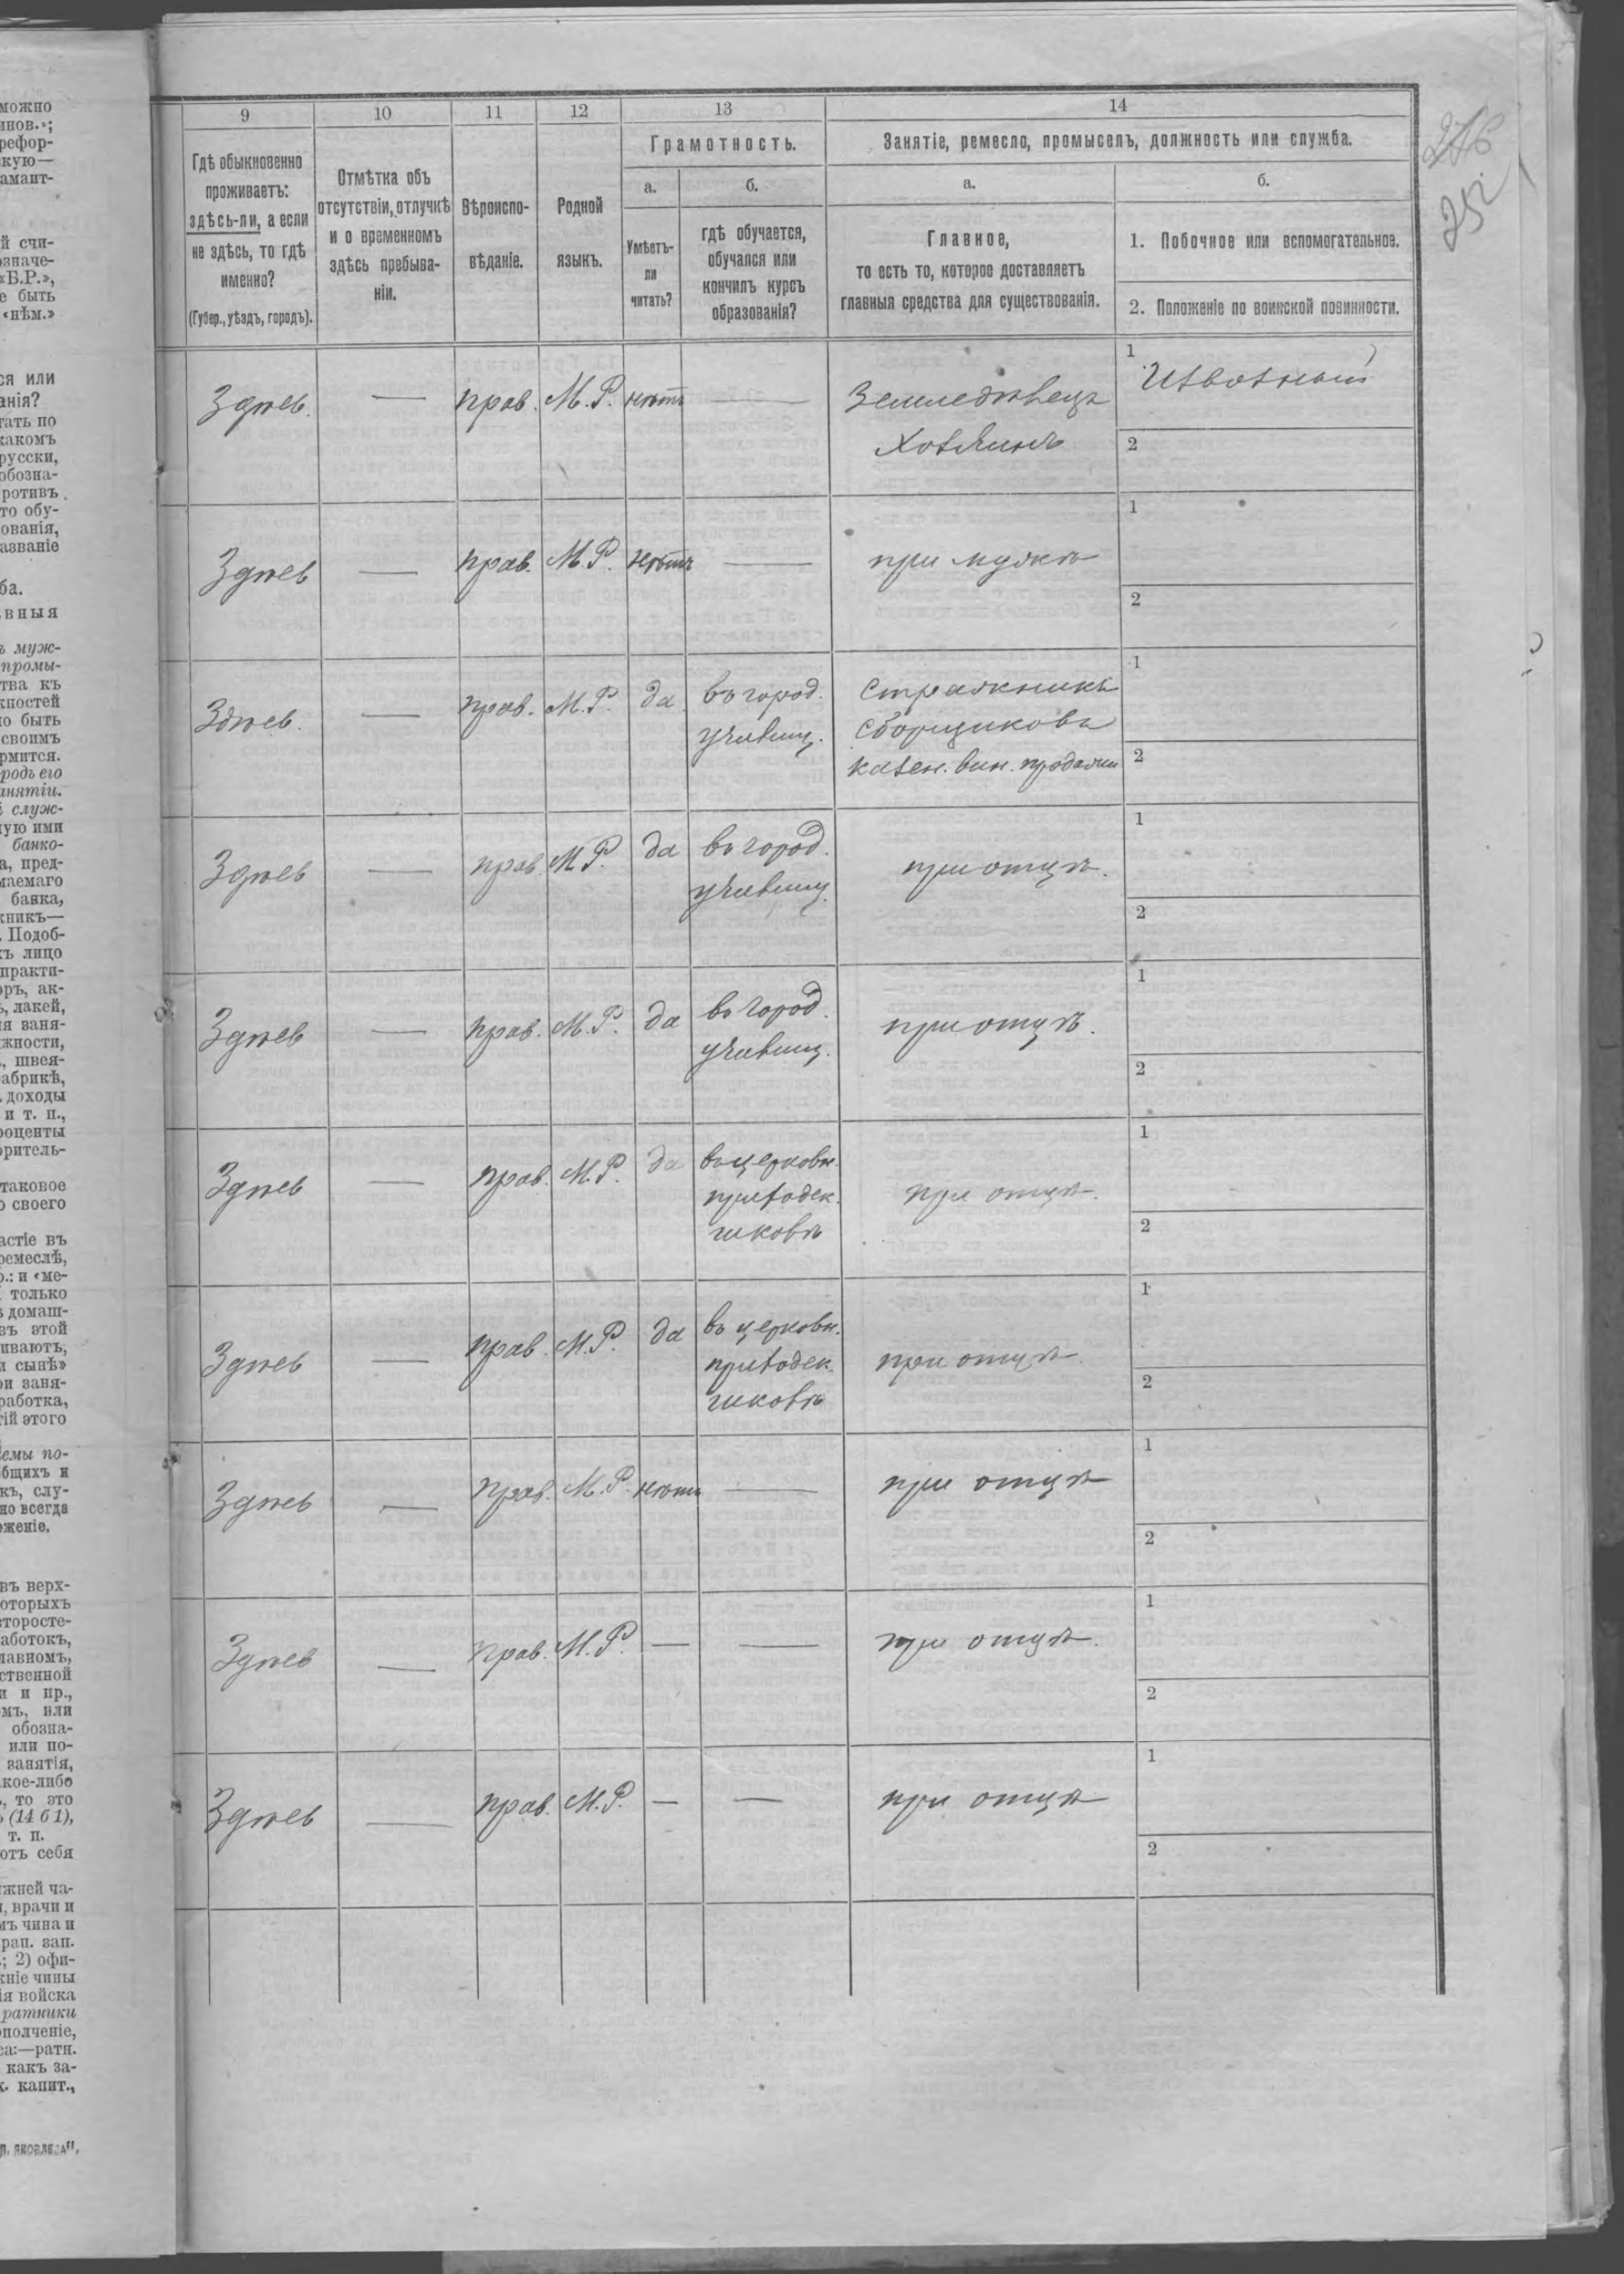 можно
инов.»;
рефор-
скую—
амант-
й счи-
означе-
«Б.Р.»,
е быть
«нѣм.»
ся или
анія?
тать по
какомъ
русски,
обозна-
ротивъ
то обу-
ованія,
азваніе
ба.
вныя
ъ муж-
промы-
тва къ
жностей
но быть
своимъ
рмится.
родъ его
анятіи.
служ-
ную ими
банко-
а, пред-
маемаго
банка,
жникъ—
. Подоб-
хъ лицо
практи-
оръ, ак-
ъ, лакей,
ія заня-
жности,
, швея-
абрикѣ,
доходы
и т. п.,
роценты
оритель-
таковое
о своего
астіе въ
ремеслѣ,
р.: и «ме-
только
въ домаш-
въ этой
ивають,
и сынѣ»
ри заня-
работка,
тій этого
емы по-
бщихъ и
къ, слу-
но всегда
оженіе.
въ верх-
оторыхъ
второсте-
аботокъ,
лавномъ,
ственной
и и пр.,
мъ, или
обозна-
или по-
занятія,
кое-либо
, то это
(14 б 1),
т. п.
отъ себя
жней ча-
, врачи и
мъ чина и
рап. зап.
; 2) офи-
жніе чины
ія войска
ратники
ополченіе,
са:—ратн.
какъ за-
к. капит.,
9 10 11 12 13 14
Гдѣ обыкновенно
проживаетъ:
здѣсь-ли, а если
не здѣсь, то гдѣ
именно?
(Губер., уѣздъ, городъ).
Отмѣтка объ
отсутствіи, отлучкѣ
и о временномъ
здѣсь пребыва-
ніи.
Вѣроиспо-
вѣданіе.
Родной
языкъ.
Грамотность.
а.
Умѣетъ-
ли
читать?
б.
гдѣ обучается,
обучался или
кончилъ курсъ
образованія?
Занятіе, ремесло, промыселъ, должность или служба.
а.
Главное,
то есть то, которое доставляетъ
главныя средства для существованія.
б.
1. Побочное или вспомогательное.
2. Положеніе по воинской повинности.
252
Здѣсь. — прав. М. Р. нѣтъ — Земледѣлецъ
Хозяинъ
1 Извозный
2
Здѣсь — прав. М. Р. нѣтъ — при мужѣ
1
2
Здѣсь. — прав. М. Р. да въ город.
училищ.
Стражникъ
Сборщиковъ
казен. вин. продажи
1
2
Здѣсь — прав М. Р. да въ город.
училищ.
при отцѣ.
1
2
Здѣсь — прав. М. Р. да въ город.
училищ.
при отцѣ.
1
2
Здѣсь — прав. М. Р. да въ церковн.
приходск.
школѣ
при отцѣ.
1
2
Здѣсь — прав. М. Р. да въ церковн.
приходск.
школѣ
при отцѣ.
1
2
Здѣсь — прав. М. Р. нѣтъ — при отцѣ
1
2
Здѣсь — прав. М. Р. — — при отцѣ.
1
2
Здѣсь — прав. М. Р. — — при отцѣ
1
2